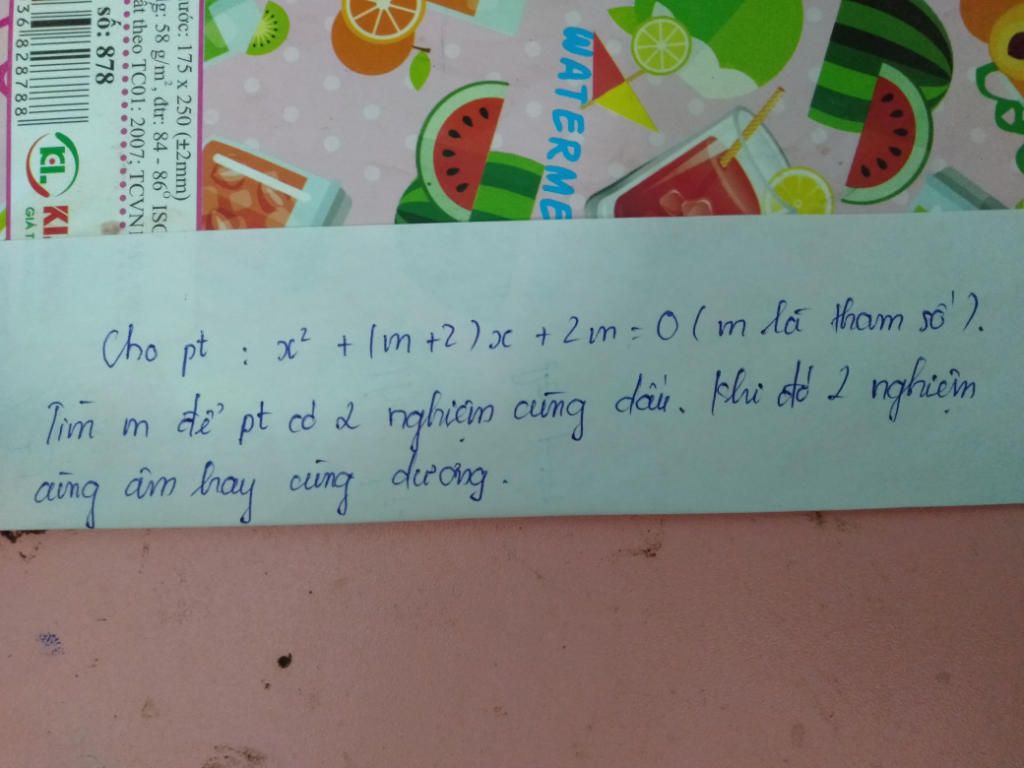 ước: 175 x 250 (±2mm)
g: 58 g/m², đtr: 84 - 86° ISO
theo TC01: 2007: TCVN
số: 878
36828788
KL
GIÁ T
WATERME
Cho pt : x² + (m+2)x + 2m = 0 ( m là tham số ).
Tìm m để pt có 2 nghiệm cùng dấu. Khi đó 2 nghiệm
cùng âm hay cùng dương.